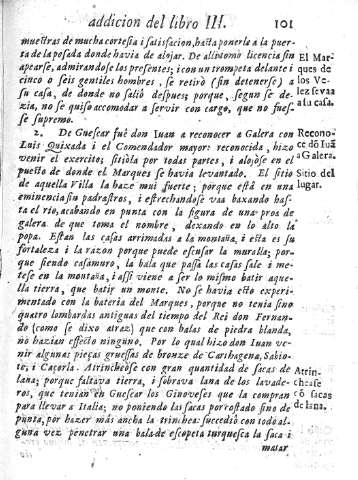 addicion del libro III. 101
muestras de mucha cortesia i satisfacion, hasta ponerle a la puer-
ta de la posada donde havia de alojar. De alli tomò licencia sin
apearse, admirandose los presentes; i con un trompeta delante i
cinco o seis gentiles hombres, se retirò (sin detenerse) a
su casa, de donde no saliò despues; porque, segun se de-
zia, no se quiso acomodar a servir con cargo, que no fues-
se supremo.
El Mar-
ques de
los Ve-
lez se va
a su casa.
2. De Guescar fuè don Iuan a reconocer a Galera con
Luis Quixada i el Comendador mayor: reconocida, hizo
venir el exercito; sitiòla por todas partes, i alojòse en el
puesto de donde el Marques se havia levantado. El sitio
de aquella Villa la haze mui fuerte; porque està en una
eminencia sin padrastros, i estrechandose vaa baxando has-
ta el rio, acabando en punta con la figura de una proa de
galera de que toma el nombre, dexando en lo alto la
popa. Estan las casas arrimadas a la montaña, i esta es su
fortaleza i la razon porque puede escusar la muralla; por-
que siendo casamuro, la bala que passa las casas sale i me-
tese en la montaña, i assi viene a ser lo mismo batir aque-
lla tierra, que batir un monte. No se havia esto experi-
mentado con la bateria del Marques, porque no tenia sino
quatro lombardas antiguas del tiempo del Rei don Fernan-
do (como se dixo atraz) que con balas de piedra blanda,
no hazian effecto ninguno. Por lo qual hizo don Iuan ve-
nir algunas pieças gruessas de bronze de Carthagena, Sabio-
te, i Caçorla. Atrincheòse con gran quantidad de sacas de
lana; porque faltava tierra, i sobrava lana de los lavade-
ros, que tenian en Guescar los Ginoveses que la compran
para llevar a Italia; no poniendo las sacas por costado sino de
punta, por hazer mas ancha la trinchea: succediò con todo al-
guna vez penetrar una bala de escopeta turquesca la saca i
matar
Recono-
ce dō Iuā
a Galera.
Sitio del
lugar.
Atrin-
chease
cō sacas
de lana.